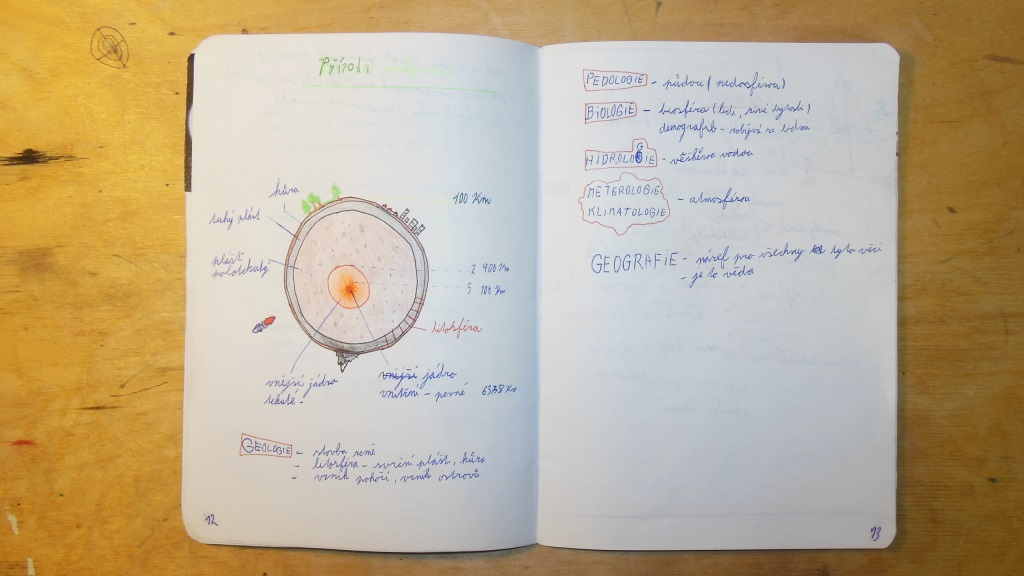 Příroda
kůra
100 Km
tuhý plášť
plášť
polotekutý
2 900 Km
5 100 Km
litosféra
vnější jádro
tekuté -
vnější jádro
vnitřní - pevné 6378 Km
GEOLOGIE - stavba země
- litosféra - svrchní plášť, kůra
- vznik pohoří, vznik ostrovů
12
PEDOLOGIE - půdou (pedosférou)
BIOLOGIE - biosféra (lidi, živé bytosti)
demografie - zabývá se lidma
HIDROLOGIE - vodou
METEROLOGIE
KLIMATOLOGIE - atmosférou
GEOGRAFIE - název pro všechny tyto věci
- je to věda
13